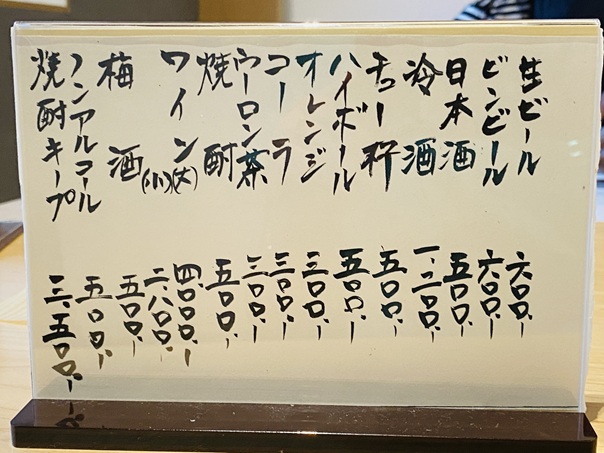 生ビール 六〇〇.-
ビンビール 六〇〇.-
日本酒 五〇〇.-
冷酒 一.二〇〇.-
チュー杯 五〇〇.-
ハイボール 五〇〇.-
オレンジ 三〇〇.-
コーラ 三〇〇.-
ウーロン茶 三〇〇.-
焼酎 五〇〇.-
ワイン(大) 四.〇〇〇.-
(小) 二.八〇〇.-
梅酒 五〇〇.-
ノンアルコール 五〇〇.-
焼酎キープ 三.五〇〇.-